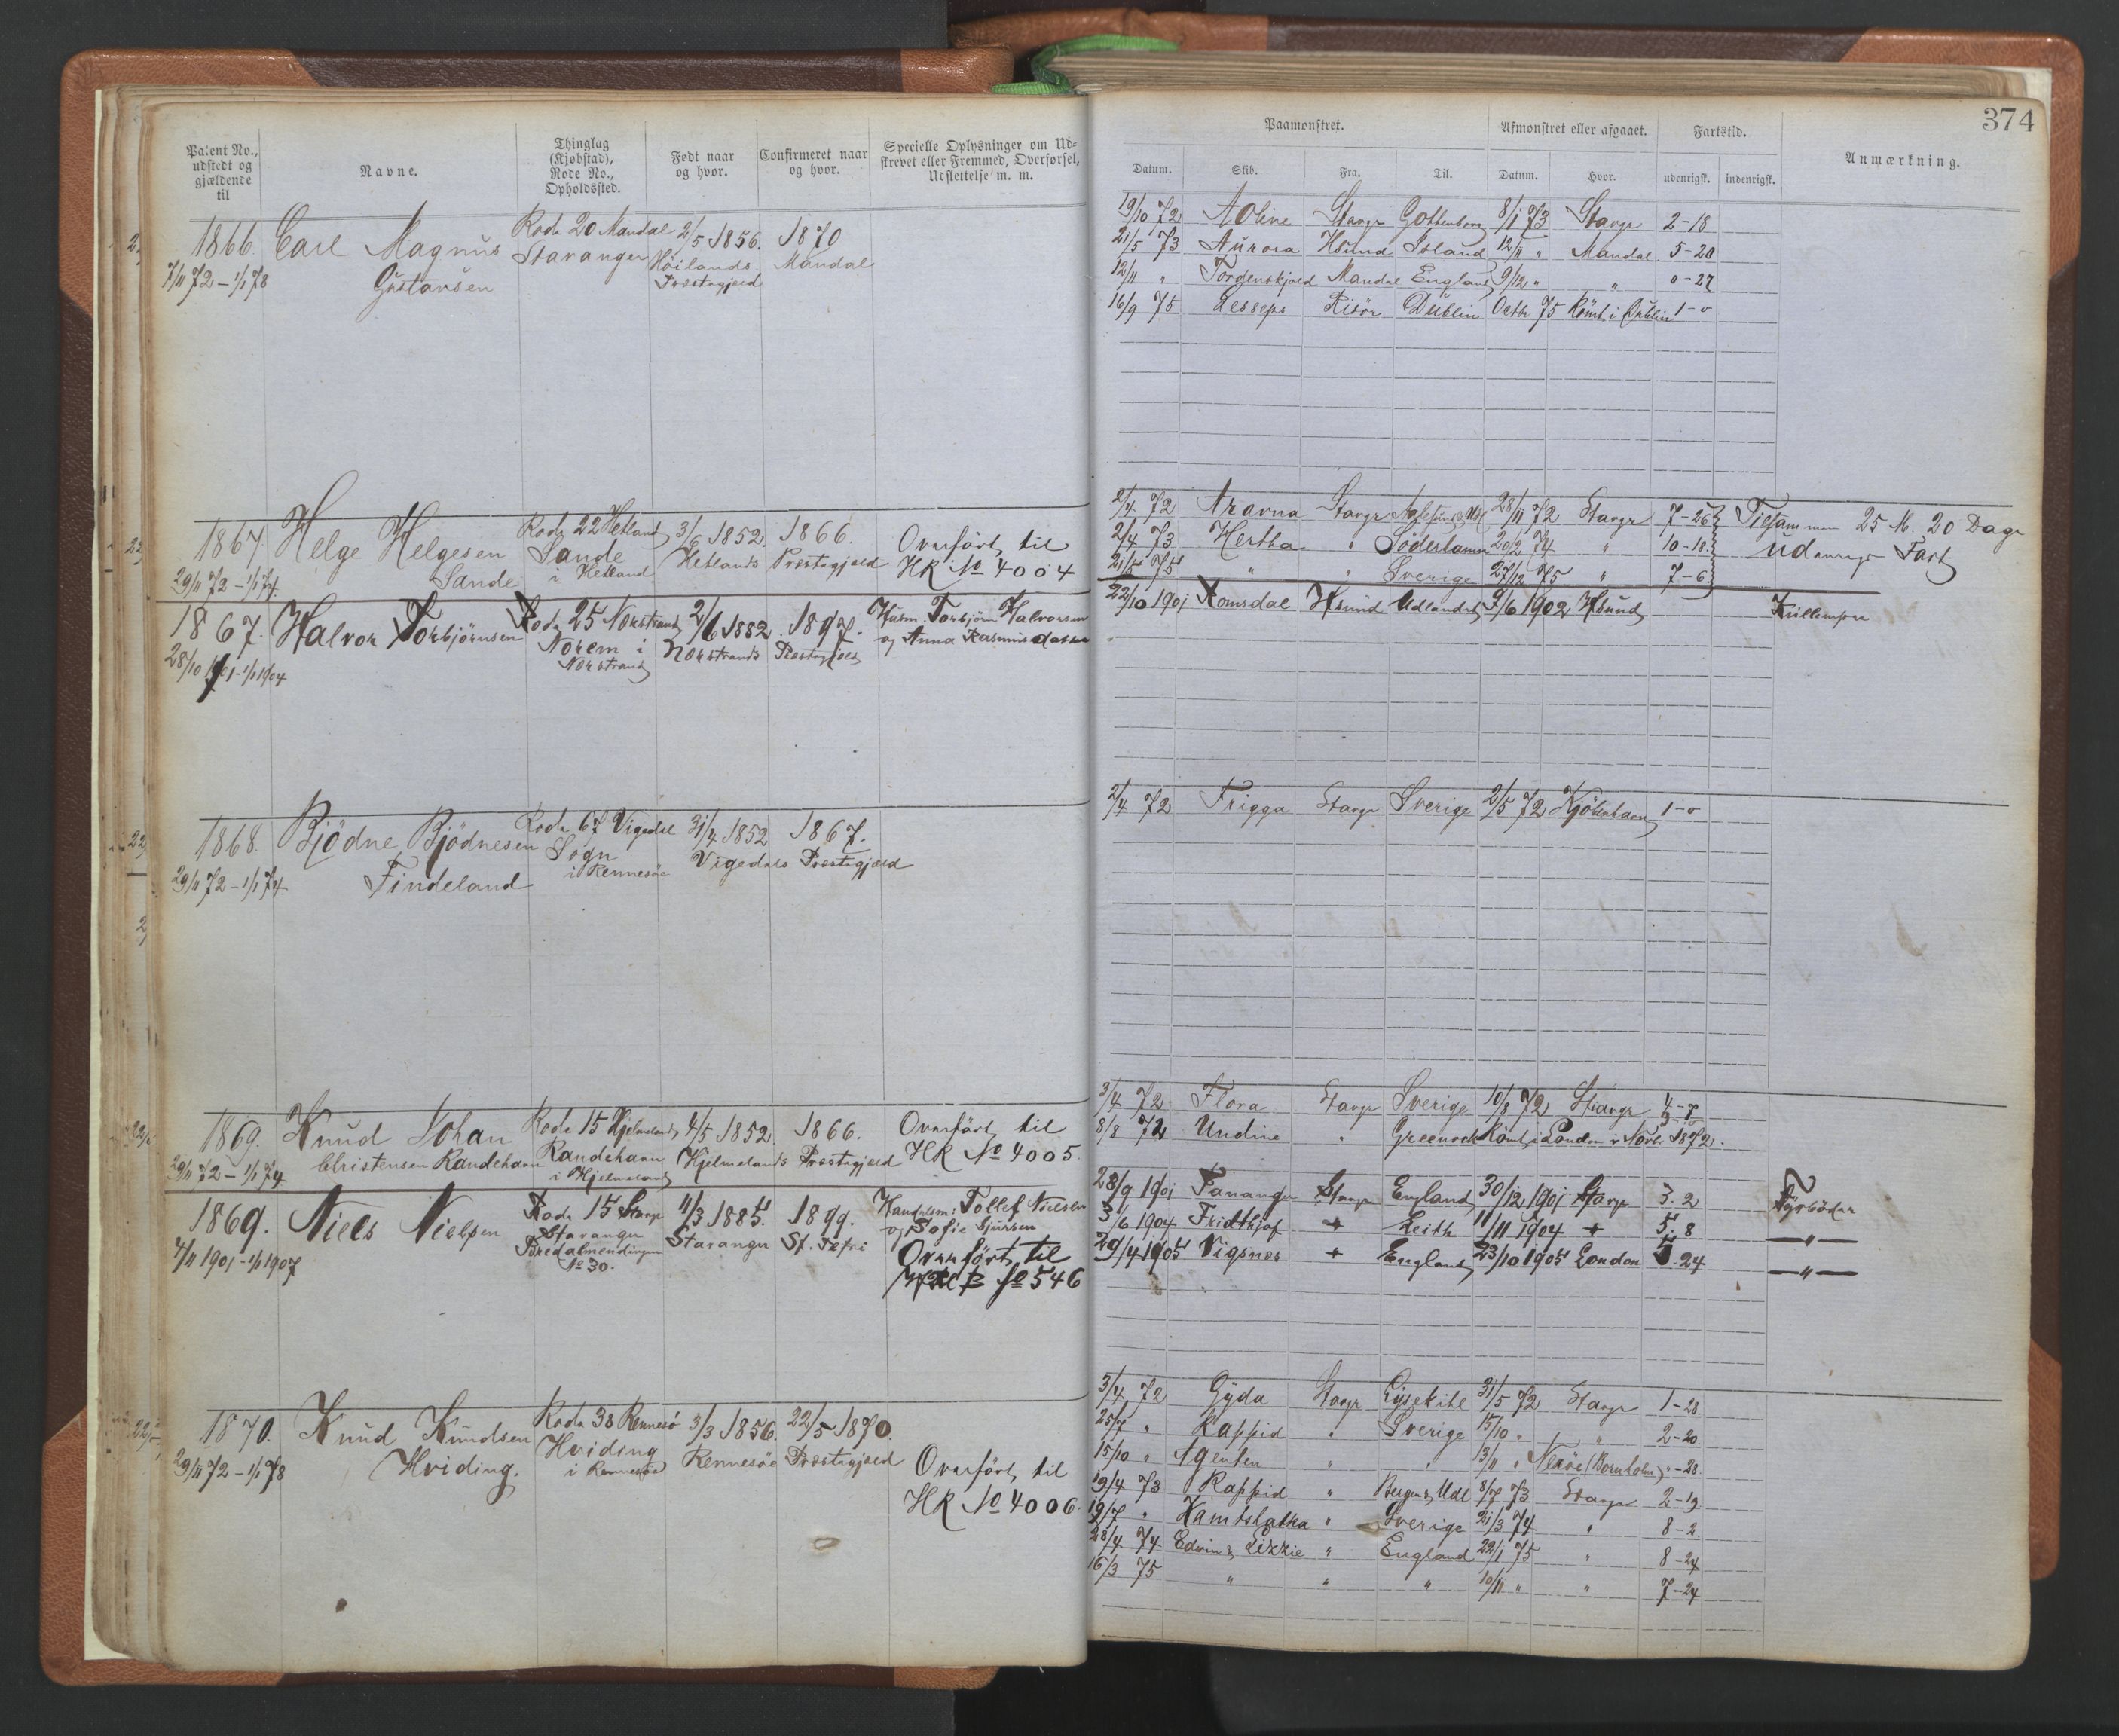 374
Patent No., udstedt og gjældende til
Navne.
Thinglag (Kjøbstad), Rode No., Opholdssted.
Født naar og hvor.
Confirmeret naar og hvor.
Specielle Oplysninger om Udskrevet eller Fremmed, Overførsel, Udslettelse m. m.
Paamønstret.
Afmønstret eller afgaaet.
Fartstid.
Anmærkning.
Datum. Skib. Fra. Til. Datum. Hvor. udenrigsk. indenrigsk.
1866. Carl Magnus Rode 20 Mandal 2/5 1856. 1870
7/11 72 – 1/1 78 Gustavsen Stavanger Høilands Præstegjæld Mandal
19/10 72 Aoline Stavgr Gottenborg 8/1 73 Stavgr 2-18
21/5 73 Aurora Hsund Island 12/11 " Mandal 5-20
12/11 " Tordenskjold Mandal England 9/12 " " 0-27
16/9 75 Lesseps Risör Dublin Octbr 75 Römt i Dublin 1-0
1867. Helge Helgesen Rode 22 Hetland 3/6 1852. 1866. Overført til
29/11 72 – 1/1 74. Sande Sande i Hetland Hetlands Præstegjæld HR No 4004
2/4 72 Aravna Stavgr 28/11 72 Stavgr 7-26 Tilsammen 25 M. 20 Dage
2/4 73 Hertha " Söderhamn 20/2 74 " 10-18 udenrigs Fart
21/5 75 " " Sverige 27/12 75 " 7-6
1867. Halvor Torbjörnsen Rode 25 Nærstrand 2/6 1882. 1897. Husm. Torbjörn Halvorsen
28/10 1901 – 1/1 1904 Norem i Nærstrand Nærstrands Præstegjæld og Anna Rasmusdatter
22/10 1901 Romsdal Hsund Udlandet 9/6 1902 Hsund Kullemper
1868. Bjödne Bjödnesen Rode 67 Vigedal 31/4 1852 1867.
29/11 72 – 1/1 74. Findeland Sogn i Rennesöe Vigedals Præstegjæld
2/4 72 Frigga Stavgr Sverige 2/5 72 Kjöbenhavn 1-0
1869. Knud Johan Rode 15 Hjelmeland 4/5 1852. 1866. Overført til
29/11 72 – 1/1 74 Christensen Randehavn Randehavn i Hjelmeland Hjelmelands Præstegjæld HR No 4005.
3/4 72 Flora Stavgr Sverige 10/8 72 Stavgr 4-7
8/8 72 Undine " Greenock Römt i London i Novbr 1872.
1869. Niels Nielsen Rode 15 Stavgr 11/3 1885. 1899. Handelsm: Tollef Nielsen
7/11 1901 – 1/1 1907 Stavanger Bredalmendingen No 30. Stavanger St. Petri og Sofie Sjursen
Overført til
B No 546
28/9 1901 Stavgr England 30/12 1901 Stavgr 3.2 Fyrböder
3/6 1904 Fridthjof + Leith 11/11 1904 + 5.8 — " —
29/4 1905 Vigsnes + England 23/10 1905 London 5.24 — " —
1870. Knud Knudsen Rode 38 Rennesö 3/3 1856. 22/5 1870.
29/11 72 – 1/1 78 Hviding. Hviding i Rennesöe Rennesöe Præstegjæld Overført til
HR No 4006.
3/4 72 Gyda Stavgr Lysekihl 31/5 72 Stavgr 1-28
25/7 " Rappid " Sverige 15/10 " " 2-20.
15/10 " Agenten " " 13/11 " Nexöe (Bornholm) "-28.
19/4 73 Rappid " Bergen & Udl 8/7 73 Stavgr 2-19
19/7 " Kamtskatka " Sverige 21/3 74 " 8-2.
28/4 74 Edwin & Lizzie " England 22/1 75 " 8-24
16/3 75 " " " 10/11 " " 7-24